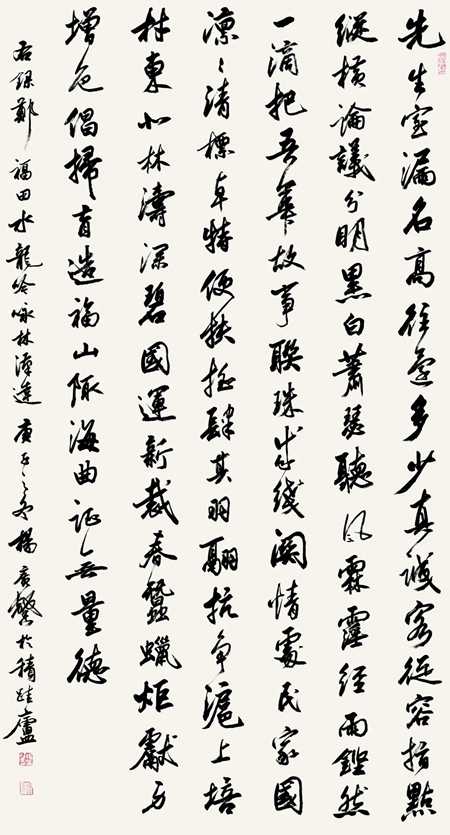 先生室漏名高往還多少真誠客從容指點
縱橫論議分明黑白蕭瑟聽風霖霪經雨鏗然
一滴把吾華故事聯珠成綫關情處民家國
凛〻清標卓特便扶肆其羽翮抗争滬上培
材東北林濤深碧國運新裁春蠶蠟炬獻方
增色倡掃盲造福山陬海曲証無量德
右録鄭福田水龍吟咏林漢達庚子之冬楊彦於積跬廬